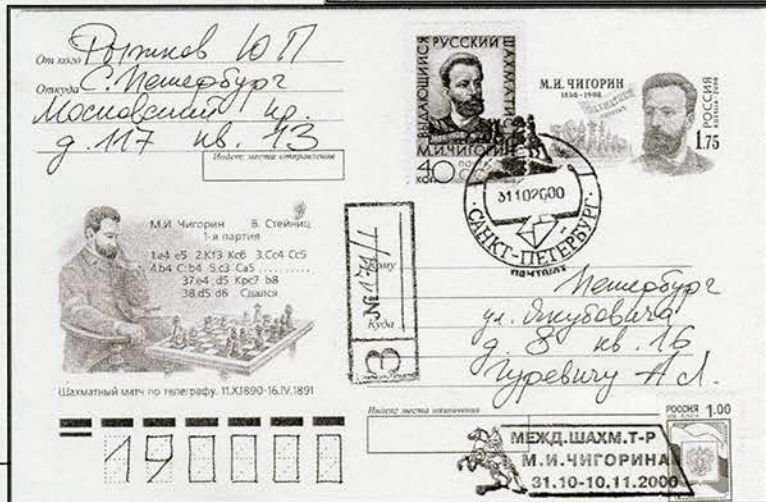 От кого Рыжков Ю П
Откуда С. Петербург
Московский пр.
д. 117 кв. 13
Индекс места отправления
ВЫДАЮЩИЙСЯ РУССКИЙ ШАХМАТИСТ
М.И.ЧИГОРИН
40
КОП
М.И. ЧИГОРИН
1850-1908
РОССИЯ
1.75
31102000
САНКТ-ПЕТЕРБУРГ
ПОЧТАМТ
М.И. Чигорин В. Стейниц
1-я партия
1.e4 e5 2.Kf3 Kc6 3.Cc4 Cc5
4.b4 C:b4 5.c3 Ca5 ..........
37.e4 :d5 Kpc7 b8
38.d5 d6 Сдался
Шахматный матч по телеграфу. 11.X.1890-16.IV.1891
З
№ 174/1
Кому
Куда
Петербург
ул. Якубовича
д. 8 кв. 16
Гуревичу А Л.
Индекс места назначения
190000
МЕЖД.ШАХМ.Т-Р
М.И.ЧИГОРИНА
31.10-10.11.2000
РОССИЯ 1.00